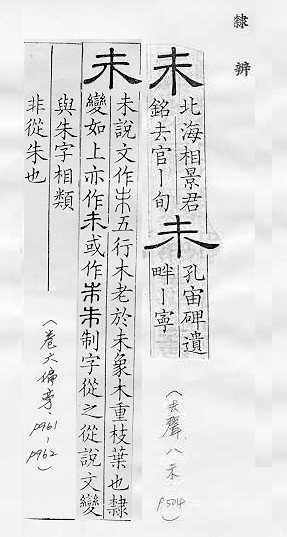 隸辨
未 北海相景君
銘去官丨旬 未 孔宙碑遺
畔丨寧
(去聲八未 P504)
未 未說文作𣎳五行木老於未象木重枝葉也隸
變如上亦作未或作 制字從之從說文變
與朱字相類
非從朱也
(卷六偏旁, P961-P962)